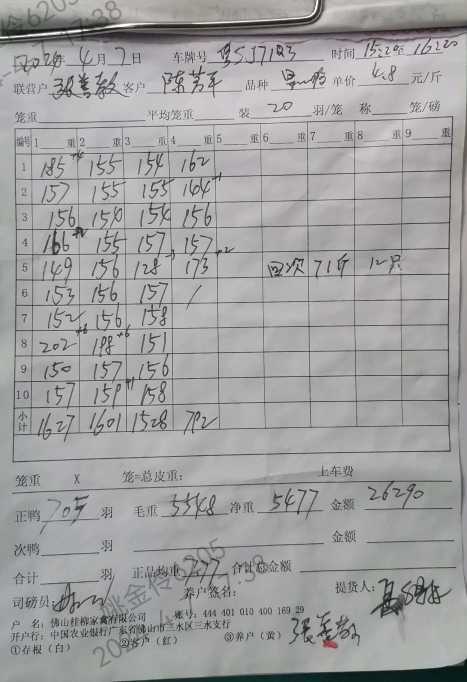 2024年4月7日 车牌号 时间 15:20至16:20
联营户 张善教 客户 陈芳平 品种 单价 4.8 元/斤
笼重 平均笼重 装 20 羽/笼 称 笼/磅
编号 1 重 2 重 3 重 4 重 5 重 6 重 7 重 8 重 9 重
1 185+4 155 154 162
2 157 155 155 164-1
3 156 154 154 156
4 166+2 155 157 157
5 149 156 128 173+2 回次 71斤 12只
6 153 156 157 /
7 152 156 158
8 202+6 198+6 151
9 150 157 156
10 157 159+1 158
小计 1627 1601 1528 792
笼重 X 笼=总皮重: 上车费
正鸭 705 羽 毛重 5548 净重 5477 金额 26290
次鸭 羽 金额
合计 羽 正品均重 7.77 合计总金额
司磅员: 养户签名: 提货人:
户 名: 佛山桂柳家禽有限公司 账号: 444 401 010 400 169 29
开户行: 中国农业银行广东省佛山市三水区三水支行
①存根(白) ②客户(红) ③养户(黄) 张善教